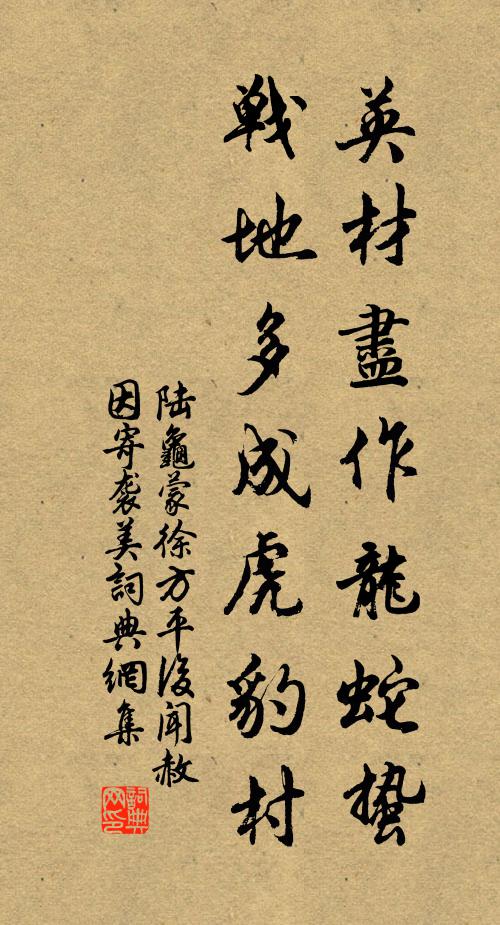 英材盡作龍蛇蟄
戰地多成虎豹村
陆龜蒙徐方平後聞赦
因寄袭美詞典網集
詞典
网印